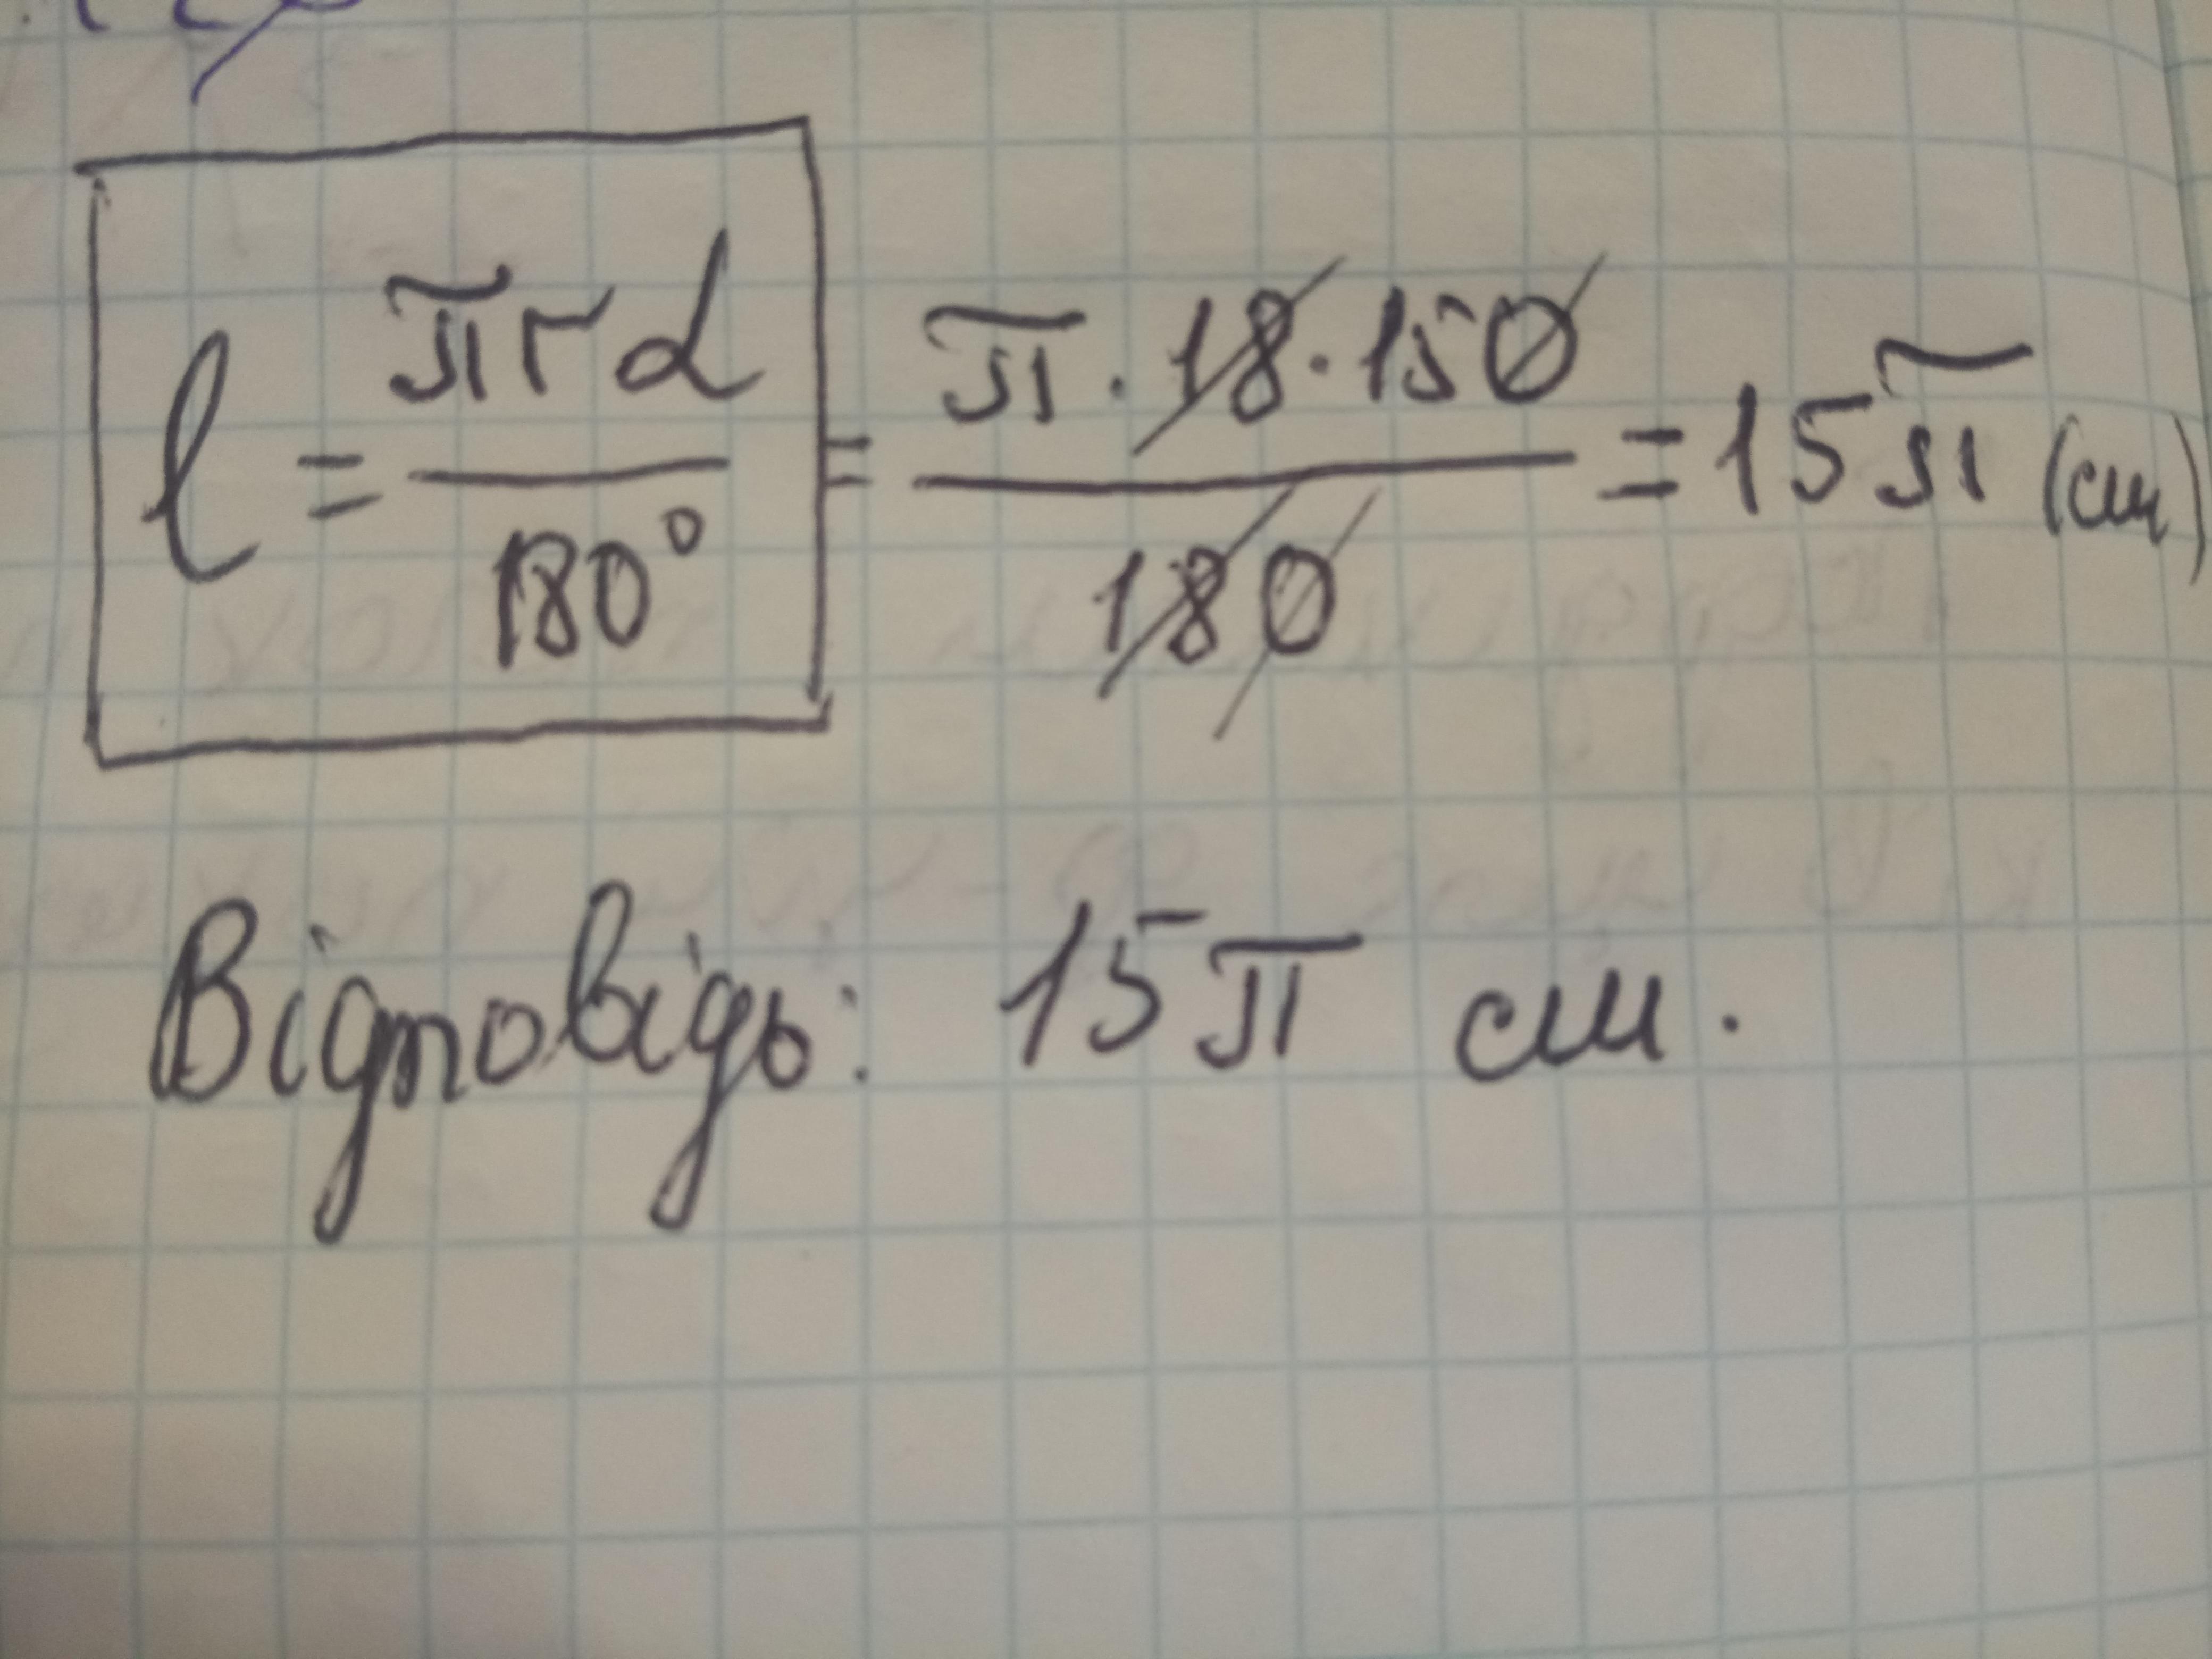 l = πrα / 180° = π · 18 · 150 / 180 = 15π (см)
Відповідь: 15π см.